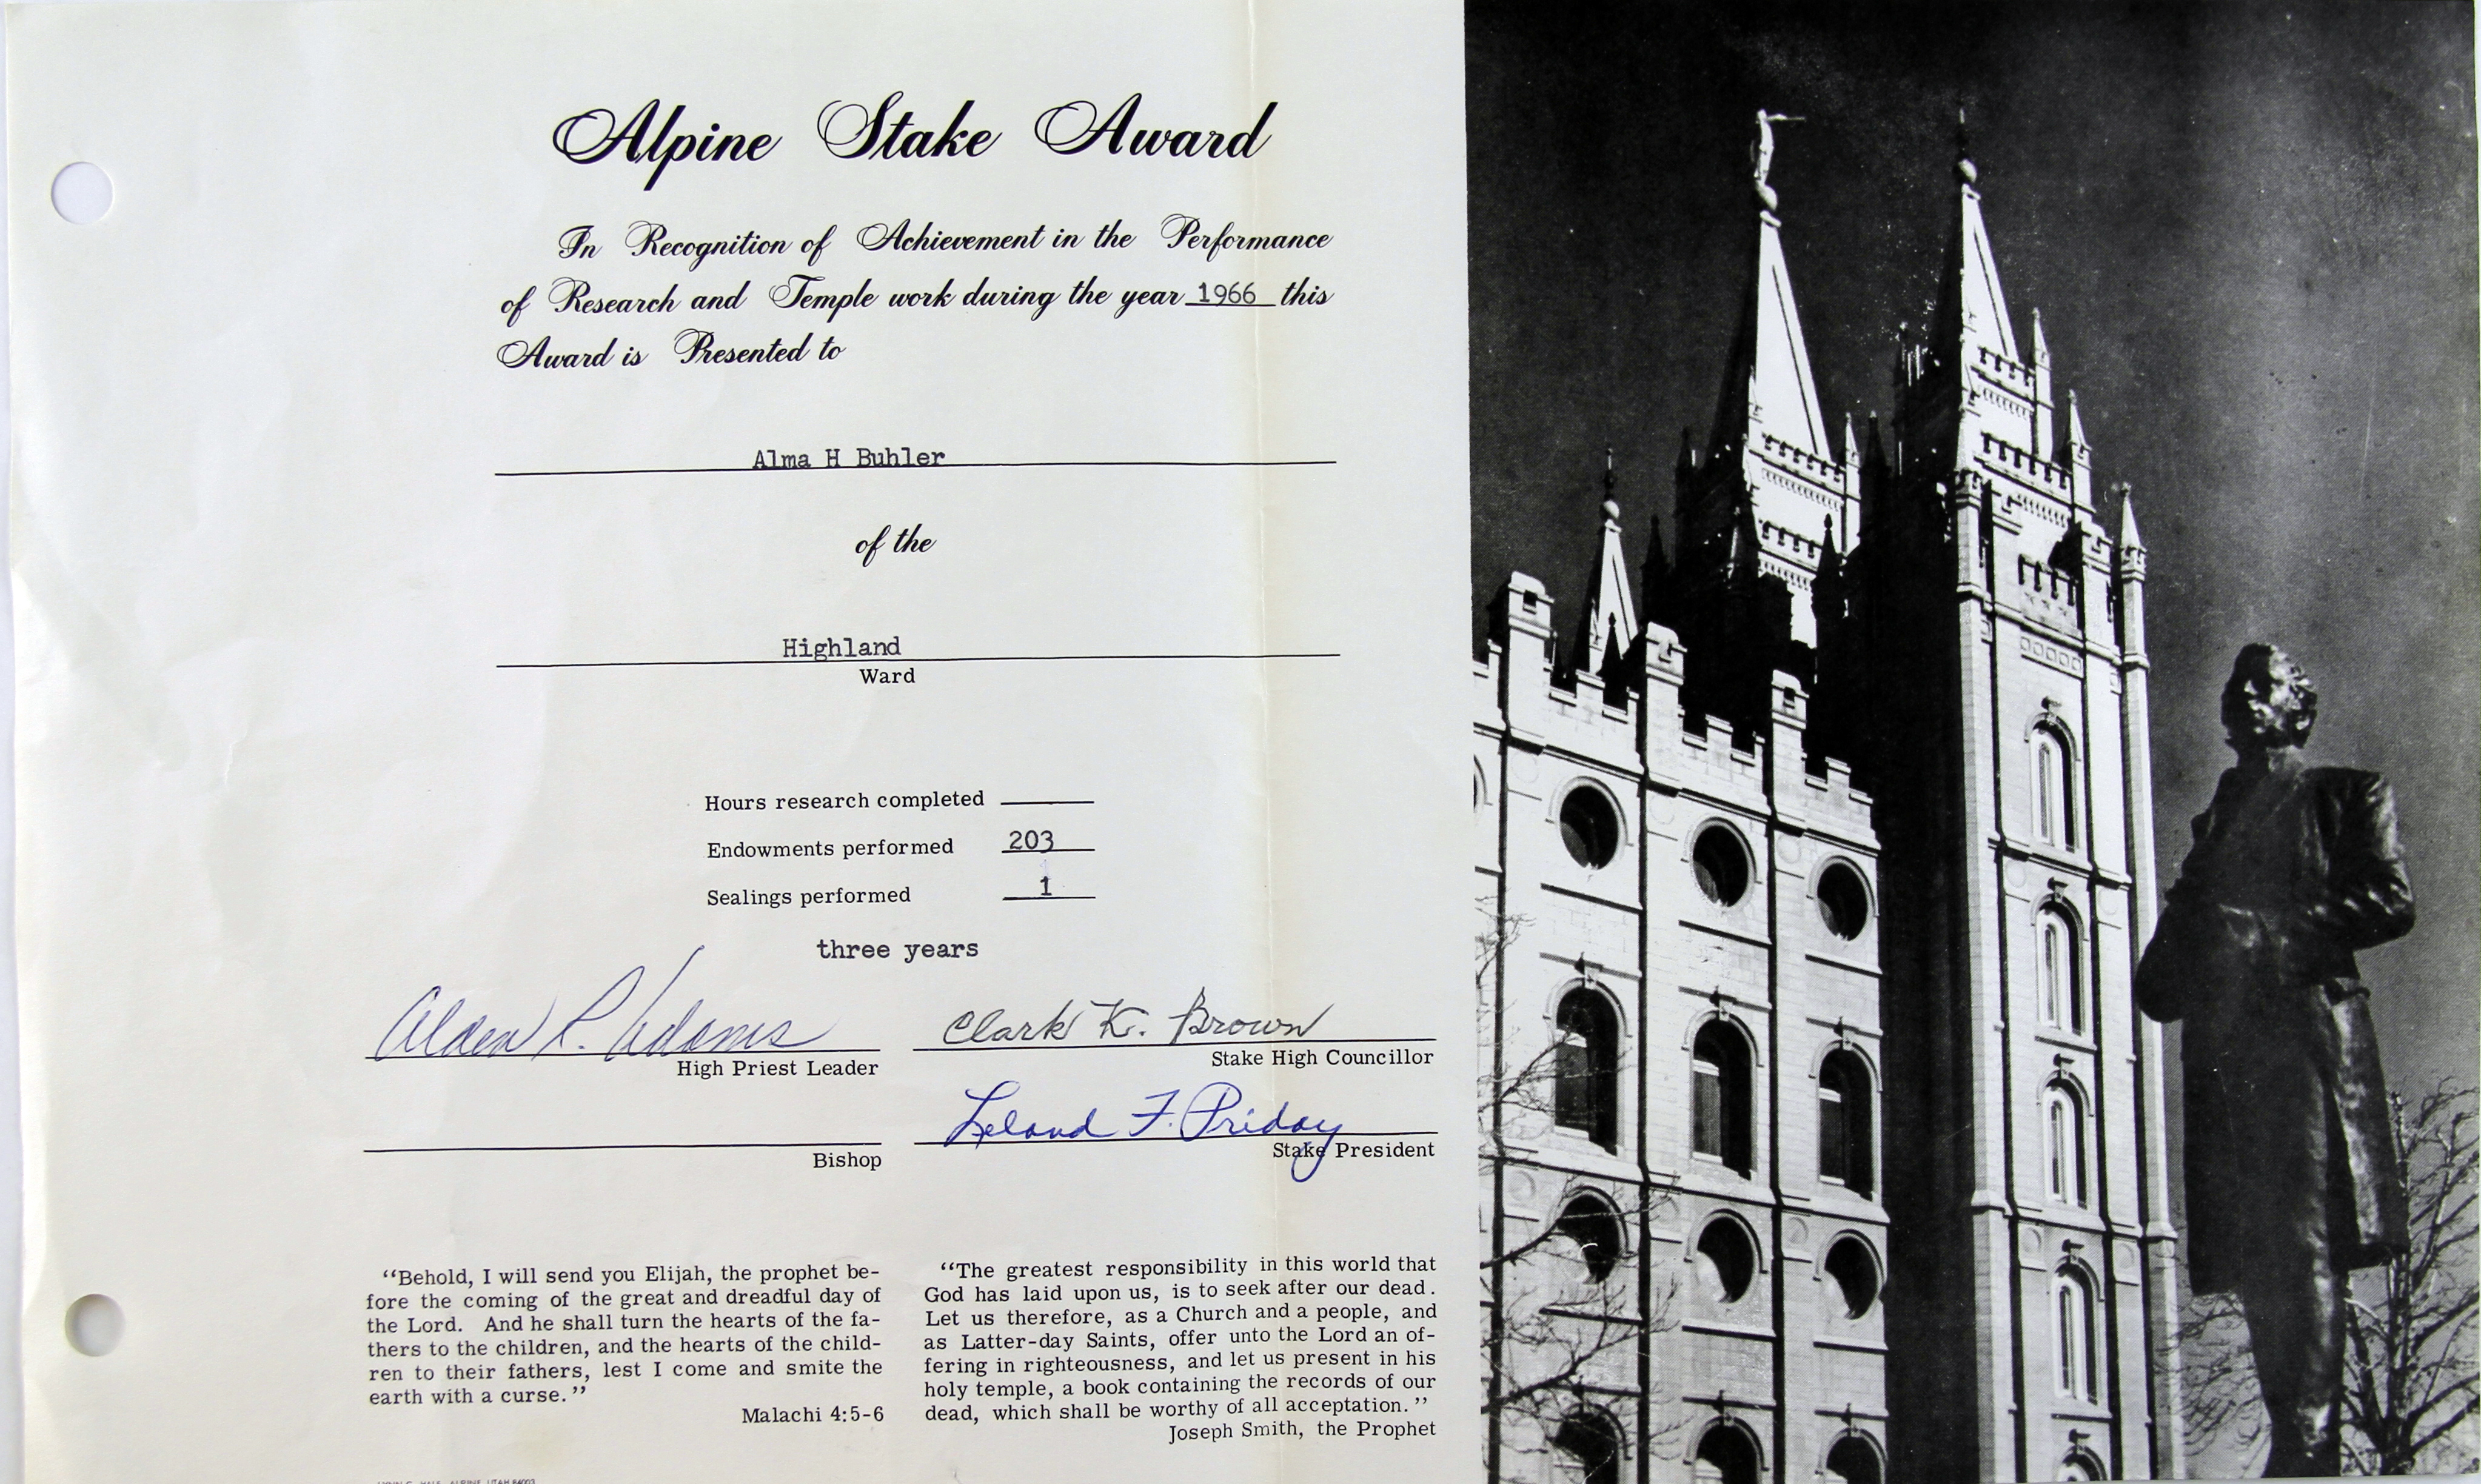 Alpine Stake Award
In Recognition of Achievement in the Performance
of Research and Temple work during the year 1966 this
Award is Presented to
Alma H Buhler
of the
Highland
Ward
Hours research completed
Endowments performed 203
Sealings performed 1
three years
Alden R. Adams
High Priest Leader
Clark K. Brown
Stake High Councillor
Leland F. Priday
Stake President
Bishop
“Behold, I will send you Elijah, the prophet be-
fore the coming of the great and dreadful day of
the Lord. And he shall turn the hearts of the fa-
thers to the children, and the hearts of the child-
ren to their fathers, lest I come and smite the
earth with a curse.”
Malachi 4:5-6
“The greatest responsibility in this world that
God has laid upon us, is to seek after our dead.
Let us therefore, as a Church and a people, and
as Latter-day Saints, offer unto the Lord an of-
fering in righteousness, and let us present in his
holy temple, a book containing the records of our
dead, which shall be worthy of all acceptation.”
Joseph Smith, the Prophet
ALPINE, UTAH 84003